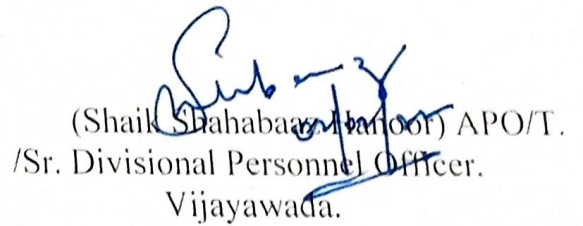 (Shaik Shahabaaz Hanoor) APO/T.
/Sr. Divisional Personnel Officer.
Vijayawada.